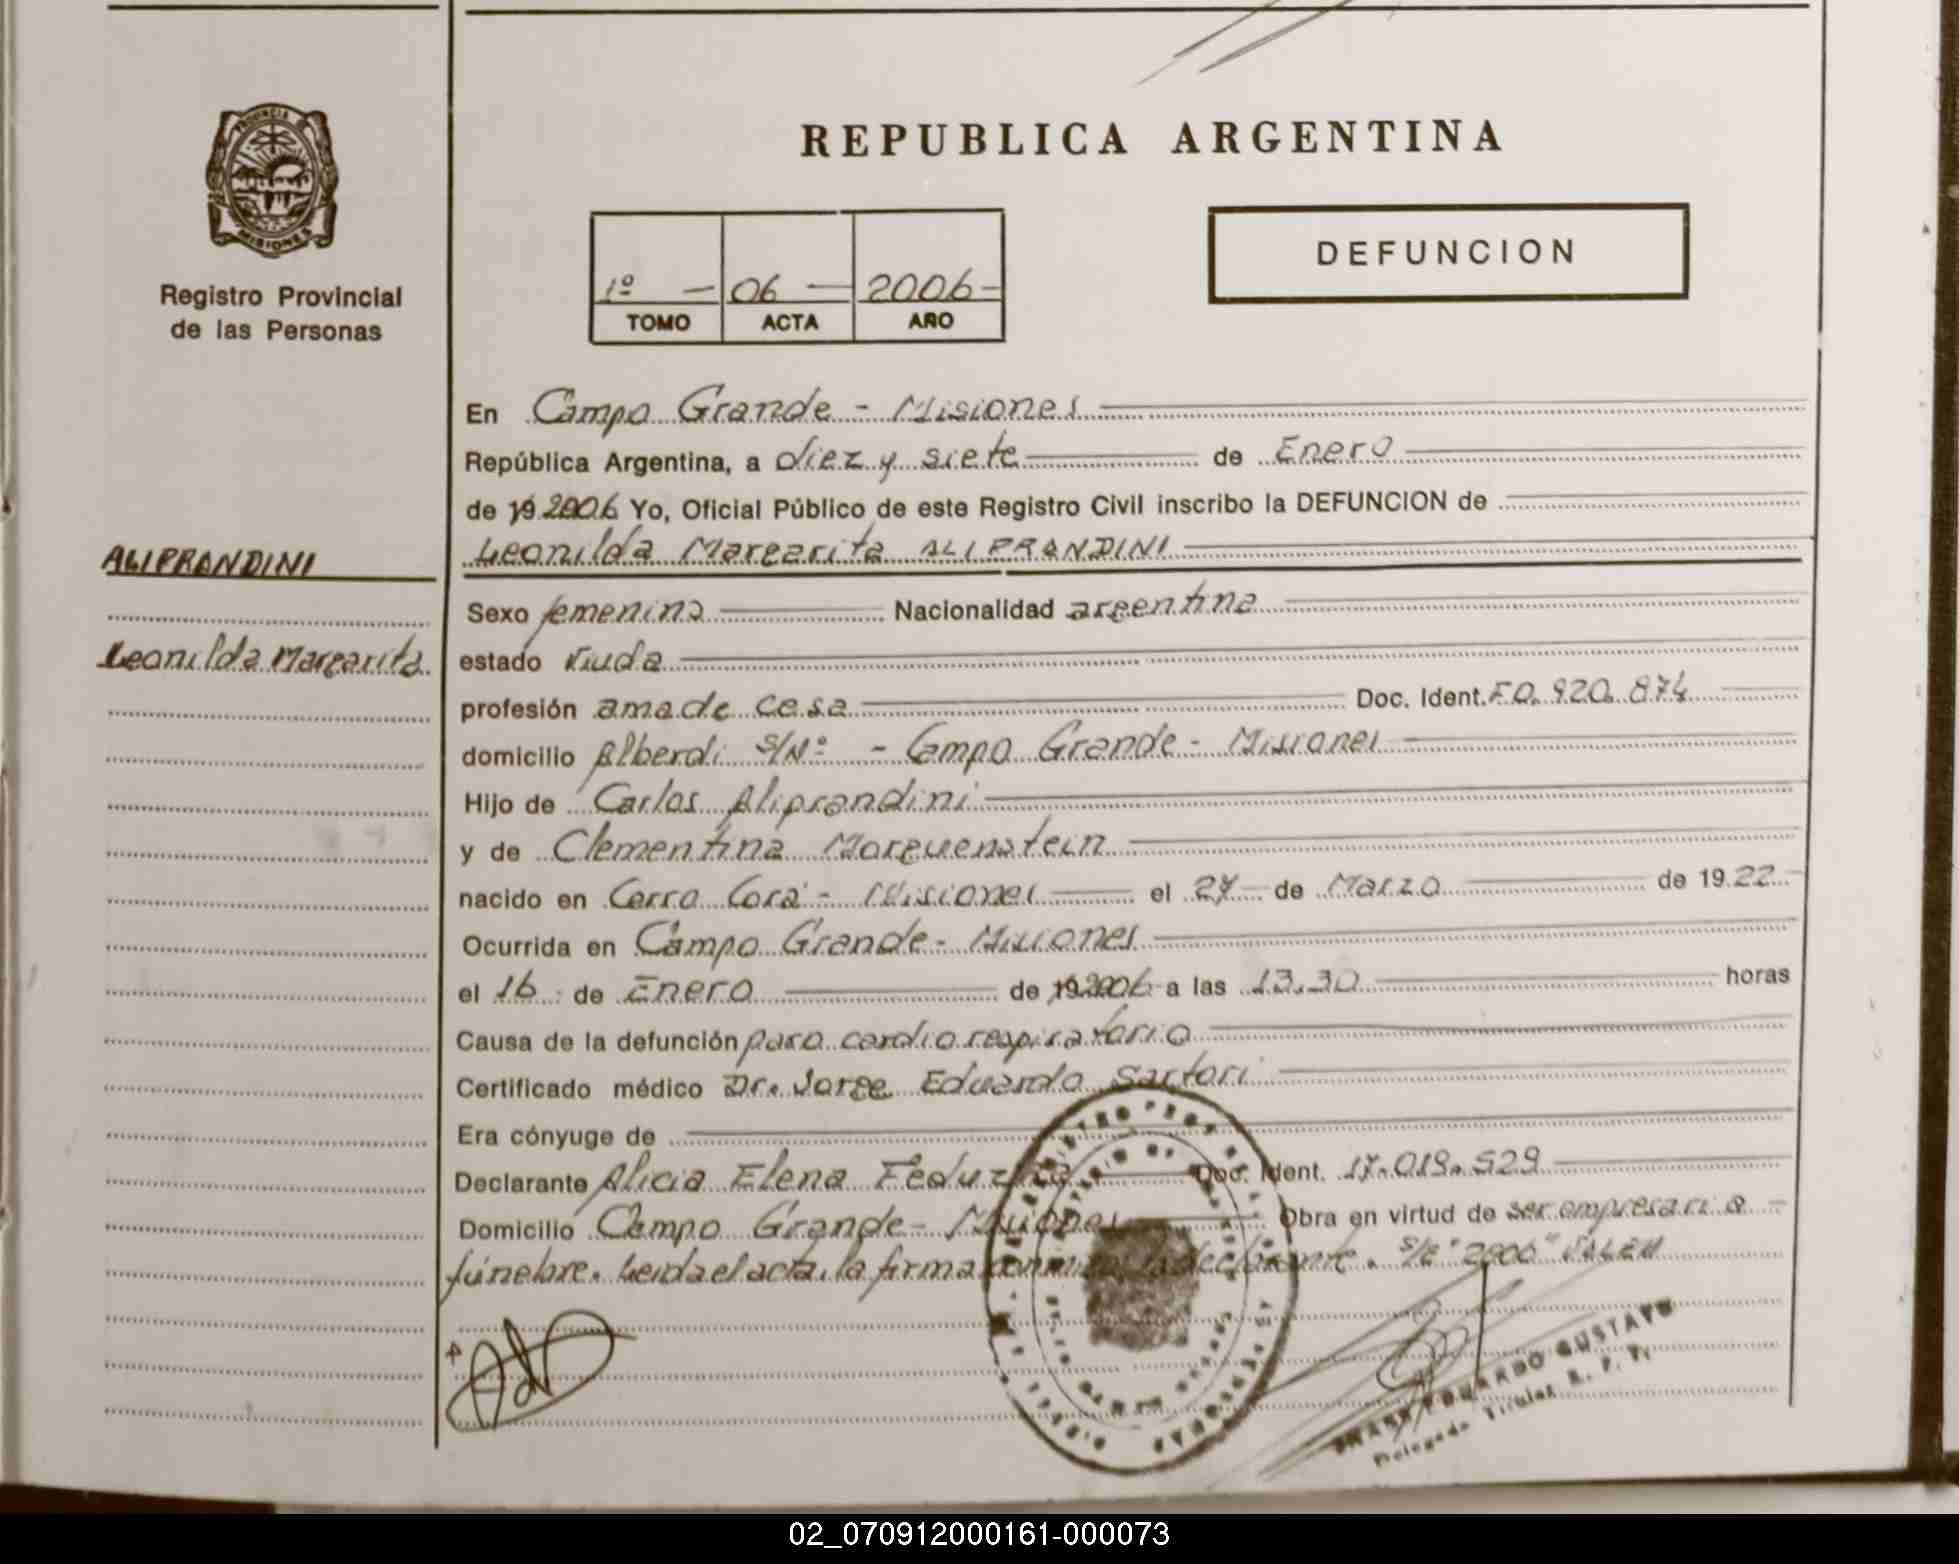 PROVINCIA
MISIONES
Registro Provincial
de las Personas
ALIPRANDINI
Leonilda Margarita
REPUBLICA ARGENTINA
1º — 06 — 2006 -
TOMO ACTA AÑO
DEFUNCION
En Campo Grande - Misiones
República Argentina, a diez y siete de Enero
de 19 2006 Yo, Oficial Público de este Registro Civil inscribo la DEFUNCION de
Leonilda Margarita ALIPRANDINI
Sexo femenino Nacionalidad argentina
estado viuda
profesión ama de casa Doc. Ident. F0.920.874
domicilio Alberdi S/Nº - Campo Grande - Misiones
Hijo de Carlos Aliprandini
y de Clementina Morguenstein
nacido en Cerro Corá - Misiones el 27 de Marzo de 1922
Ocurrida en Campo Grande - Misiones
el 16 de Enero de 19 2006 a las 13.30 horas
Causa de la defunción paro cardio respiratorio
Certificado médico Dr. Jorge Eduardo Sartori
Era cónyuge de
Declarante Alicia Elena Doc. Ident. 17.019.529
Domicilio Campo Grande - Misiones Obra en virtud de ser empresaria
fúnebre. Leida el acta, la firma conmigo la declarante. S/R "2006" VALEN
EDUARDO GUSTAVO
Delegado Titular R. P. P.
02_070912000161-000073